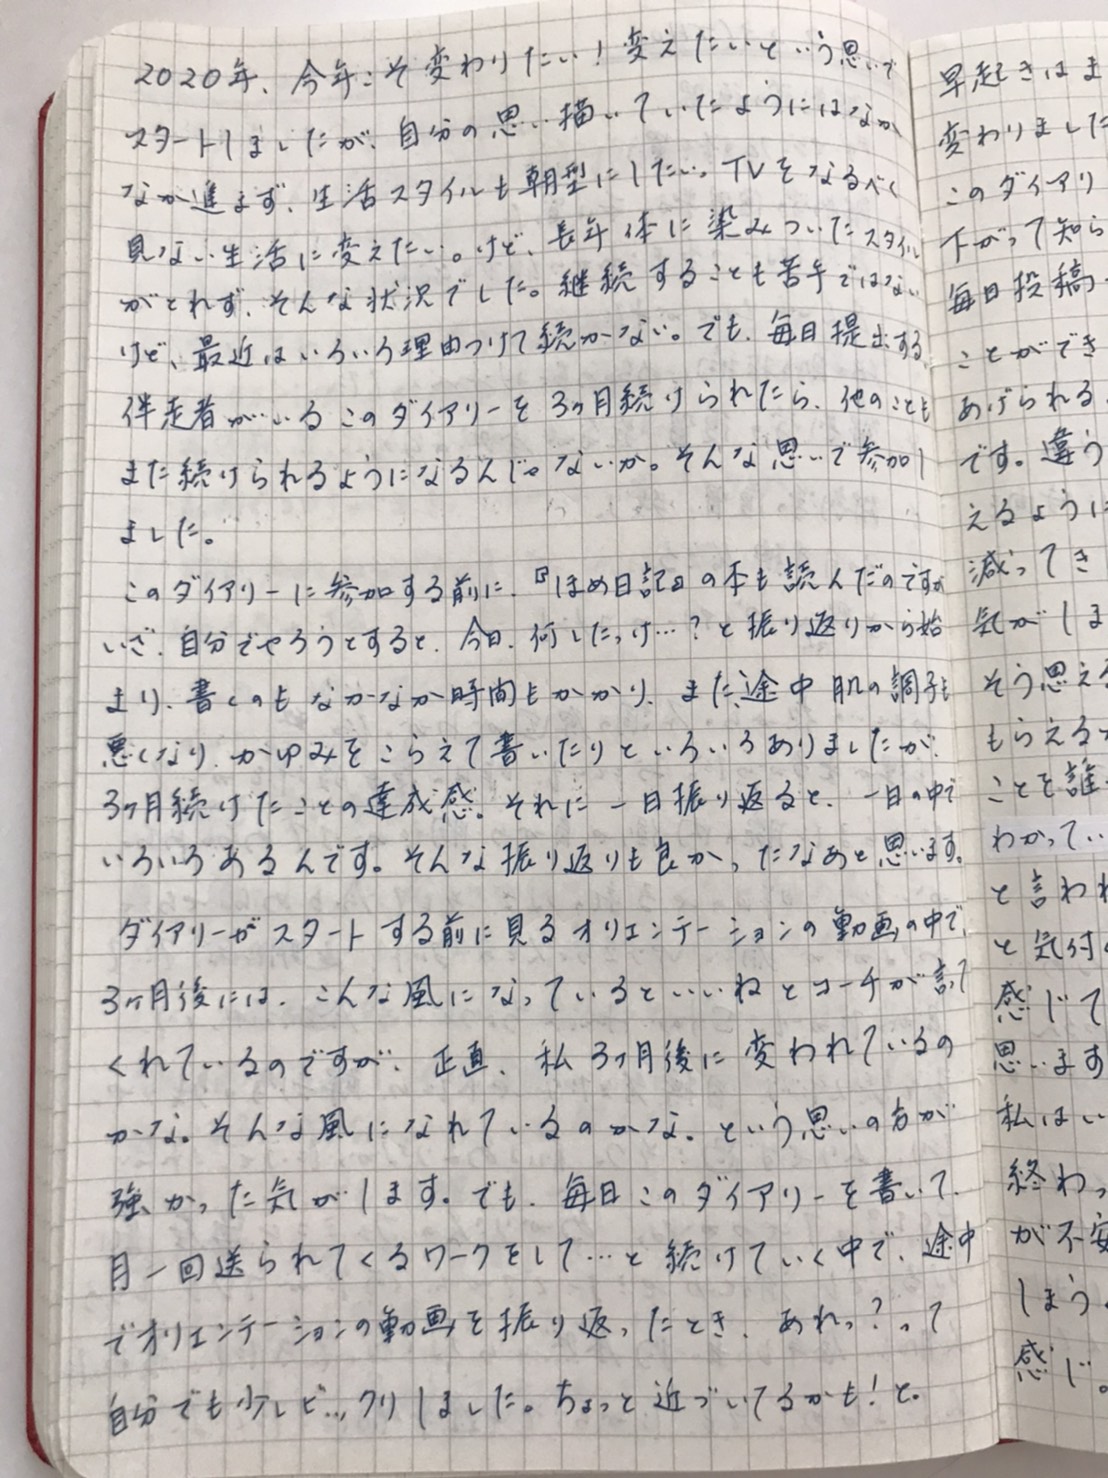 2020年、今年こそ変わりたい！変えたいという思いで
スタートしましたが、自分の思い描いていたようにはなか
なか進まず、生活スタイルも朝型にしたい。TVをなるべく
見ない生活に変えたい。けど、長年体に染みついたスタイル
がとれず、そんな状況でした。継続することも苦手ではない
けど、最近はいろいろ理由つけて続かない。でも、毎日提出する、
伴走者がいるこのダイアリーを3ヶ月続けられたら、他のことも
また続けられるようになるんじゃないか。そんな思いで参加し
ました。
このダイアリーに参加する前に、『ほめ日記』の本も読んだのですが
いざ、自分でやろうとすると、今日、何したっけ…？と振り返りから始
まり、書くのもなかなか時間もかかり、また、途中肌の調子も
悪くなり、かゆみをこらえて書いたりといろいろありましたが、
3ヶ月続けたことの達成感。それに一日振り返ると、一日の中で
いろいろあるんです。そんな振り返りも良かったなあと思います。
ダイアリーがスタートする前に見るオリエンテーションの動画の中で、
3ヶ月後には、こんな風になっているといいねとコーチが言って
くれているのですが、正直、私3ヶ月後に変われているの
かな。そんな風になれているのかな。という思いの方が
強かった気がします。でも、毎日このダイアリーを書いて、
月一回送られてくるワークをして…と続けていく中で、途中
でオリエンテーションの動画を振り返ったとき、あれっ？って
自分でも少しビックリしました。ちょっと近づいてるかも！と。
早起きはま
変わりました
このダイアリ
下がって知ら
毎日投稿
ことができ
あげられる
です。違う
えるように
減ってき
気がしま
そう思える
もらえる
ことを誰
わかってい
と言われ
と気付
感じて
思います
私はい
終わっ
が不安
しまう
感じ。